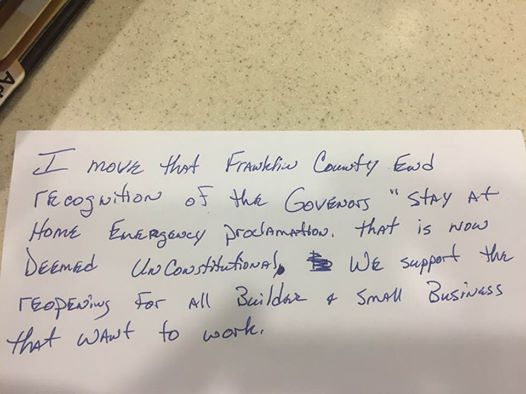 I move that Franklin County End
recognition of the Govenors "Stay At
Home Emergency proclamation. that is now
Deemed UnConstitutional. We support the
reopening For All Builder & Small Business
that want to work.